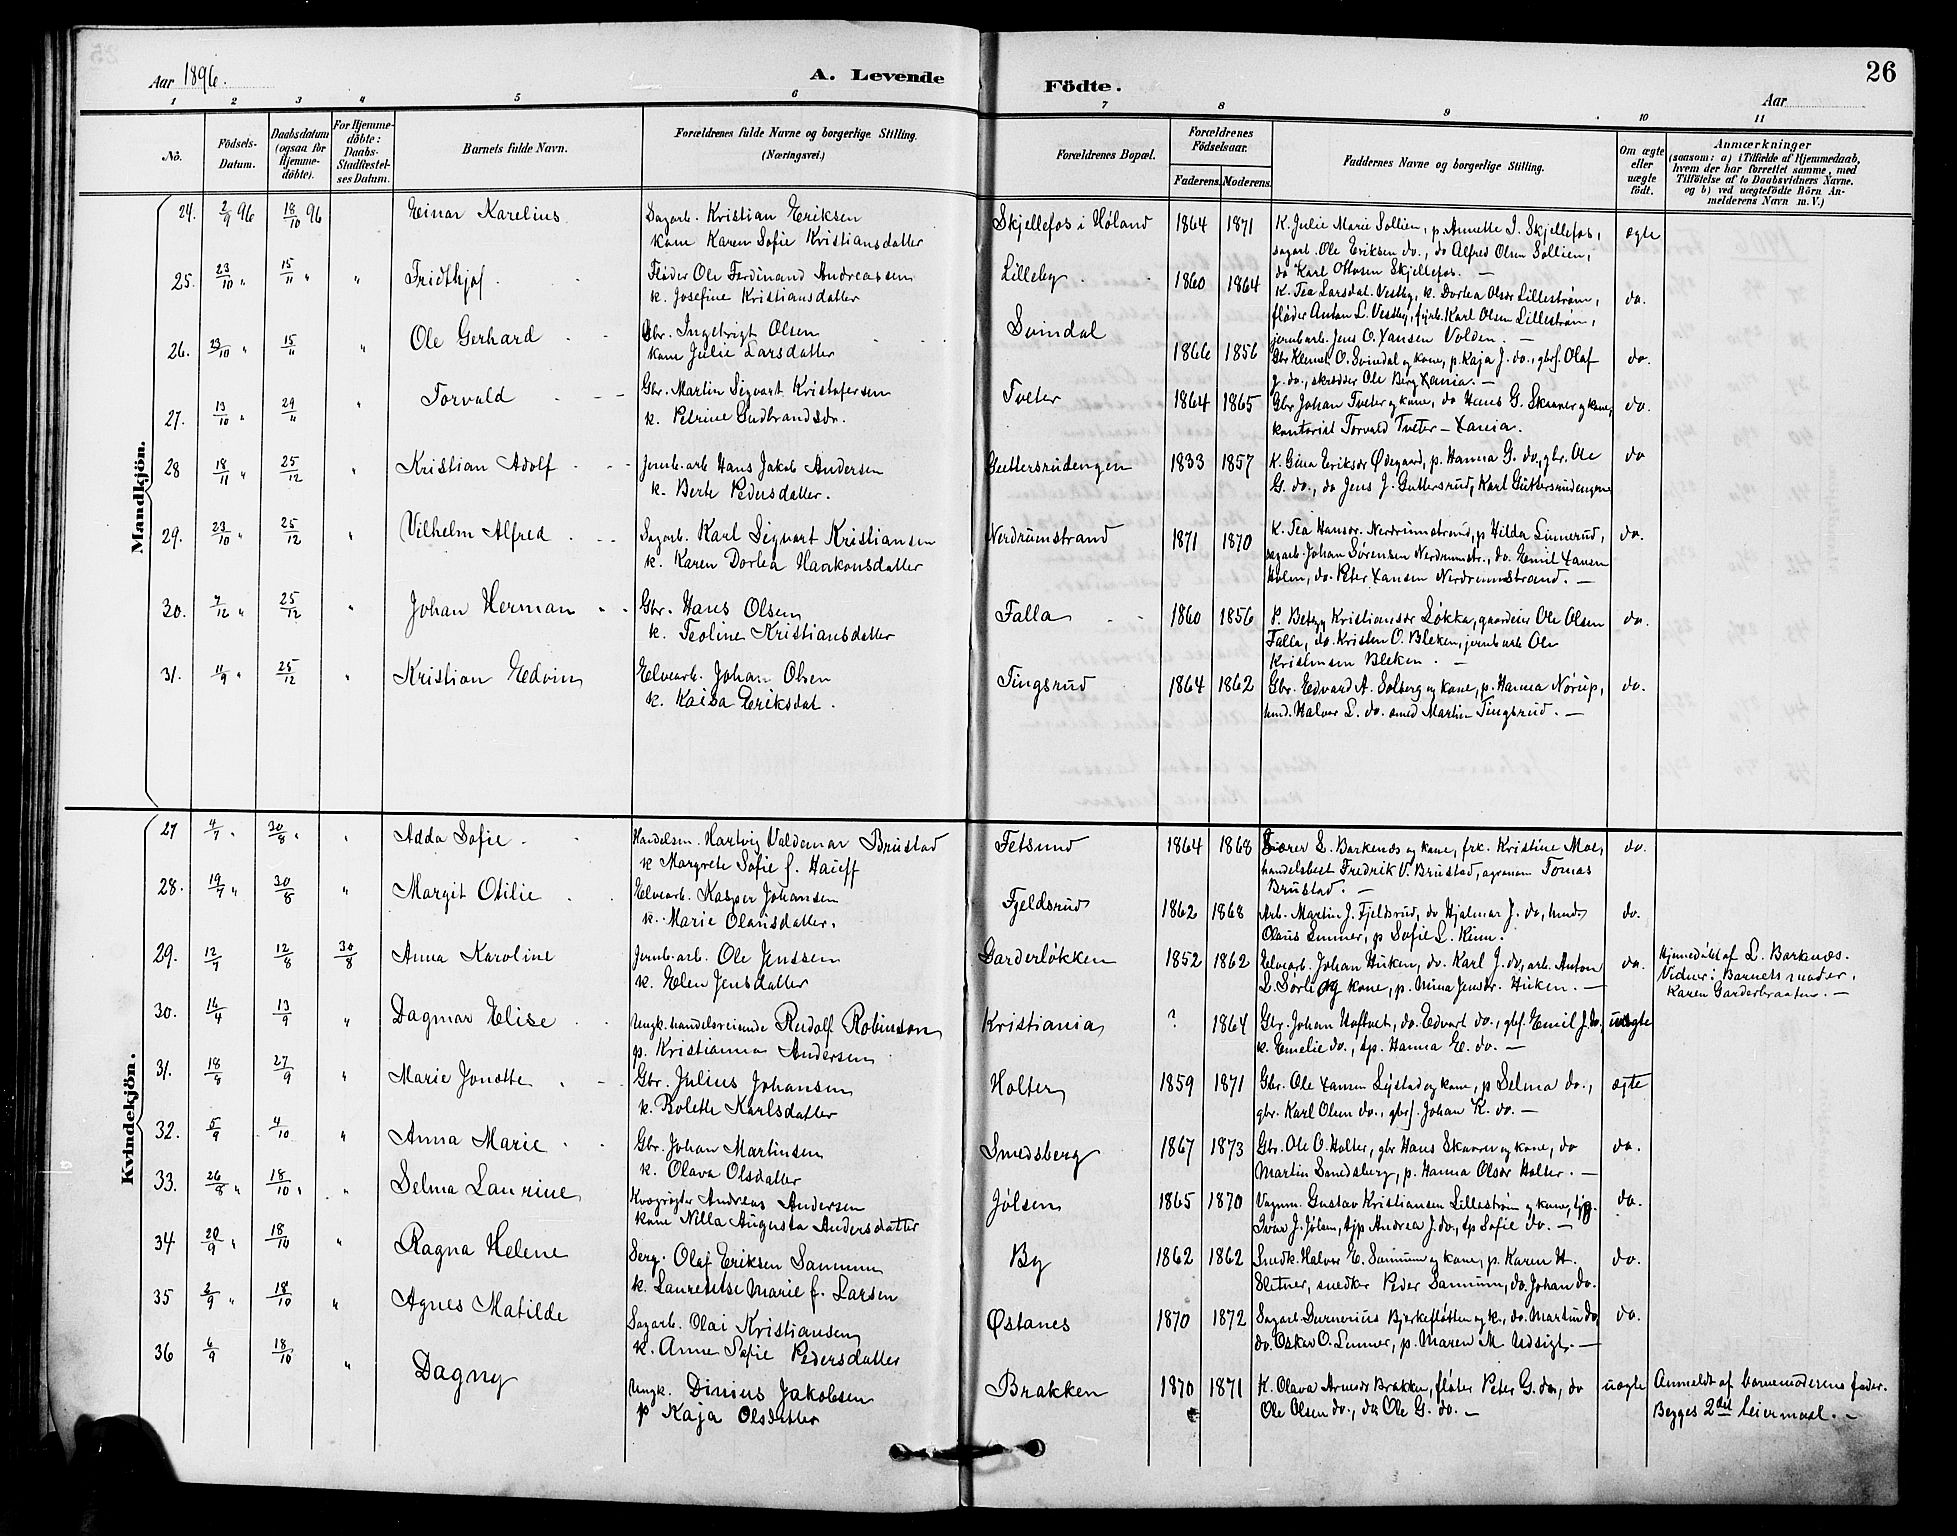 Aar 1896.
A. Levende
Födte.
26
Aar
1 2 3 4 5 6 7 8 9 10 11
No.
Födsels-Datum.
Daabsdatum (ogsaa for Hjemme-döbte).
For Hjemme-döbte: Daabs-Stadfæstel-ses Datum.
Barnets fulde Navn.
Forældrenes fulde Navne og borgerlige Stilling.
(Næringsvei.)
Forældrenes Bopæl.
Forældrenes Födselsaar.
Faderens. Moderens.
Faddernes Navne og borgerlige Stilling.
Om ægte eller uægte födt.
Anmærkninger
(saasom: a) i Tilfælde af Hjemmedaab, hvem der har forrettet samme, med Tilföielse af to Daabsvidners Navne, og b) ved uægtefödte Börn An-melderens Navn m. V.)
Mandkjön.
24. 2/9 96 18/10 96 Einar Karelius Sagarb. Kristian Eriksen Skjellefos i Høland 1864 1871 K. Julie Marie Sollien, p. Annette I. Skjellefos, ægte
kone Karen Sofie Kristiansdatter sagarb. Ole Eriksen do., do Alfred Olsen Sollien,
do Karl Ottosen Skjellefos. —
25. 23/10 " 15/11 " " Fridthjof Fløder Ole Ferdinand Andreassen Lilleby 1860 1864 K. Tea Larsdat. Vestby, k. Dorlea Olsdr Lillestrøm, do.
k. Josefine Kristiansdatter fløder Anton L. Vestby, fyrb. Karl Olsen Lillestrøm,
jernb.arb. Jens O. Hansen Volden. —
26. 23/10 " 15/11 " Ole Gerhard Gbr. Ingebrigt Olsen Svindal 1866 1856 Gbr Klemet O. Svindal og kone, p. Kaja J. do., gbrs. Olaf do.
kone Julie Larsdatter J. do., skrædder Ole Berg Xania. —
27. 13/10 " 29/11 " Torvald Gbr. Martin Sigvart Kristofersen Tveter 1864 1865 Gbr Johan Tveter og kone, do Hans G. Skaarer og kone, do.
k. Petrine Gudbrandsdr. kontorist Torvald Tveter – Xania.
28 18/11 " 25/12 " Kristian Adolf Jernb.arb Hans Jakob Andersen Guttersrudengen 1833 1857 K. Gina Eriksdr Ødegaard, p. Hanna G. do., gbr. Ole do
k. Berte Pedersdatter. G. do., do Jens J. Guttersrud, Karl Guttersrudengen
29. 23/10 " 25/12 " Vilhelm Alfred Sagarb. Karl Sigvart Kristiansen Nerdrumstrand 1871 1870 K. Tea Hansdr. Nerdrumstrand, p Hilda Linnerud, do.
k. Karen Dorlea Haakonsdatter sagarb. Johan Sørensen Nerdrumstr., do. Emil Hansen
Holm, do. Peter Hansen Nerdrumstrand. —
30. 7/12 " 25/12 " Johan Herman Gbr. Hans Olsen Falla 1860 1856 P. Betzy Kristiansdr Løkka, gaardeier Ole Olsen do.
k. Teoline Kristiansdatter Falla, do. Kristen O. Bleken, jernb arb Ole
Kristensen Bleken. —
31. 11/9 " 25/12 " Kristian Edvin Elvearb. Johan Olsen Tingsrud 1864 1862 Gbr. Edvard A. Solberg og kone, p. Hanna Norup, do.
k. Kaisa Eriksdat. husd. Halvor L. do. smed Martin Tingsrud. —
Kvindekjön.
27 4/7 " 30/8 " " Adda Sofie Handelsm. Hartvig Valdemar Brustad Fetsund 1864 1868 L. Barkenæs og kone, frk. Kristine Moe, do.
k Margrete Sofie f. Haieff handelsbest Fredrik V. Brustad, agronom Tomas
Brustad. —
28. 19/7 " 30/8 " Margit Otilie Elvearb. Kasper Johansen Fjeldsrud 1862 1868 Arb. Martin J. Fjeldsrud, do Hjalmar J. do, husd. do.
k. Marie Olausdatter. Olaus Linner, p Sofie L. Riim.
29. 12/7 12/8 30/8 Anna Karoline Jernb.arb. Ole Jenssen Garderløkken 1852 1862 Elvearb. Johan Huken, do. Karl J. do., arb. Anton do. Hjemmedøbt af L. Barknæs.
k. Elen Jensdatter L. Sørli og kone, p. Mina Jensdr. Huken. — Vidner: Barnets moder,
Karen Garderbraaten. —
30. 14/4 13/9 " Dagmar Elise Ungk. handelsreisende Rudolf Robinson Kristiania ? 1864 Gbr. Johan Hoftvet, do. Edvart do., gbs. Emil J. do. uægte
p. Kristianna Andersen k. Emelie do., tp. Hanna E. do. —
31. 18/8 27/9 " Marie Jonette Gbr. Julius Johansen Holter 1859 1871 Gbr. Ole Hansen Lystad og kone, p Selma do., ægte
k. Bolette Karlsdatter gbr. Karl Olsen do., gbrs. Johan K. do. —
32. 5/9 4/10 " Anna Marie Gbr. Johan Martinsen Smedsberg 1867 1873 Gbr. Ole O. Holter, gbr Hans Skaarer og kone, do do.
k. Olava Olsdatter Martin Smedsberg, p. Hanna Olsdr Holter. —
33. 26/8 " 18/10 " " Selma Laurine Kvægrøgter Andreas Andersen Jølsen 1865 1870 Vognm. Gustav Kristiansen Lillestrøm og kone, do.
kone Nilla Augusta Andersdatter Ivar J. Jølsen, tjp Andrea J. do., tp Sofie do. —
34 20/9 " 18/10 " Ragna Helene Serg. Olaf Eriksen Sannum By 1862 1862 Snedk. Halvor E. Sannum og kone, p. Karen H. do.
k. Laurentse Marie f. Larsen Sletner, snedker Peder Sannum, do. Johan do.
35 2/9 " 18/10 " Agnes Matilde Sagarb. Olai Kristiansen Østanes 1870 1872 Sagarb Gunerius Bjerkefløtten og k., do. Martin do, do.
k. Anne Sofie Pedersdatter do. Oskar O. Linner, p. Maren M. Udsigt. —
36 6/9 18/10 " Dagny Ungk. Dinius Jakobsen Brakken 1870 1871 K. Olava Arnesdr Brakken, fløter Peter G. do., do uægte Anmeldt af barnemoderens fader.
p Kaja Olsdatter Ole Olsen do., do Ole G. do. — Begges 2det leiermaal. —